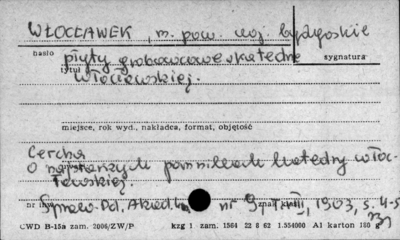 WŁOCŁAWEK, m. pow. woj. bydgoskie
hasło płyty grobowcowe katedry sygnatura
tytuł włocławskiej.
miejsce, rok wyd., nakładca, format, objętość
Cercha
O najstarszych pomnikach katedry włoc-
ławskiej.
nr inw. Spraw. Pol. Akad. Um. nr 9, t. VIII, 1903, s. 4-5
CWD B-15a zam. 2006/ZW/P kzg 1 zam. 1564 22 8 62 1.554000 A1 karton 180